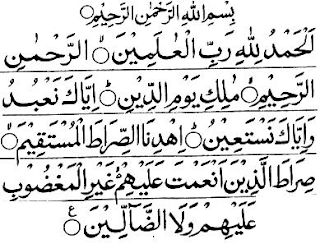 بِسْمِ اللهِ الرَّحْمٰنِ الرَّحِيْمِ۝
اَلْحَمْدُ لِلّٰهِ رَبِّ الْعٰلَمِيْنَ۝ۙ الرَّحْمٰنِ
الرَّحِيْمِ۝ۙ مٰلِكِ يَوْمِ الدِّيْنِ۝ؕ اِيَّاكَ نَعْبُدُ
وَاِيَّاكَ نَسْتَعِيْنُ۝ؕ اِهْدِنَا الصِّرَاطَ الْمُسْتَقِيْمَ۝ۙ
صِرَاطَ الَّذِيْنَ اَنْعَمْتَ عَلَيْهِمْ۝ۙ غَيْرِ الْمَغْضُوْبِ
عَلَيْهِمْ وَلَا الضَّآلِّيْنَ۝ع